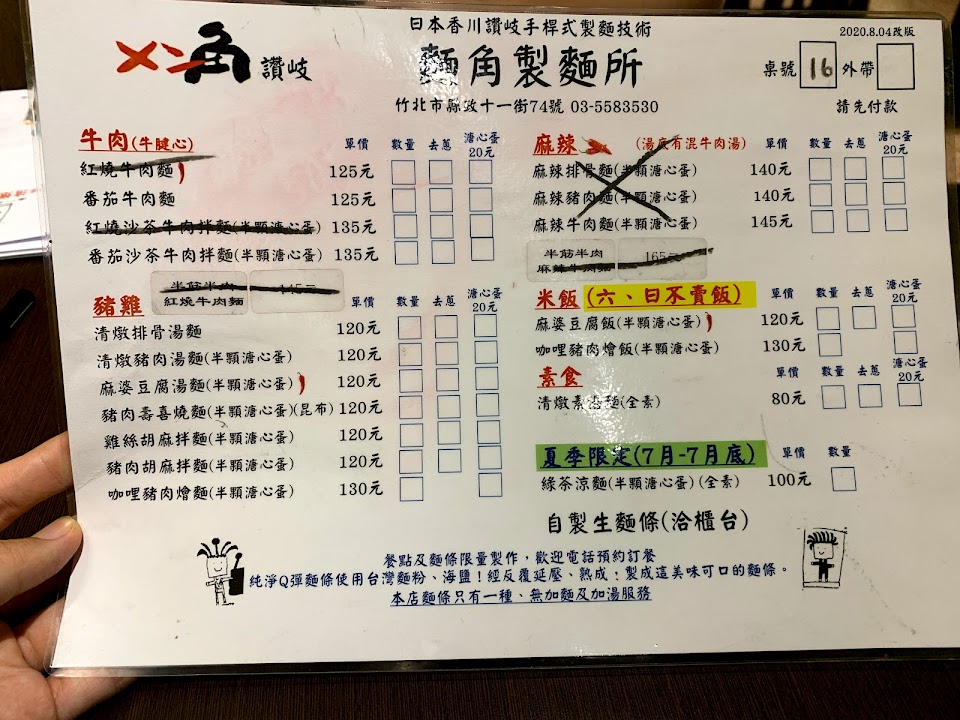 日本香川讚岐手桿式製麵技術
メン角 讚岐
麵角製麵所
2020.8.04改版
桌號 16 外帶
竹北市縣政十一街74號 03-5583530
請先付款
牛肉(牛腱心) 單價 數量 去蔥 溏心蛋20元
紅燒牛肉麵 125元
番茄牛肉麵 125元
紅燒沙茶牛肉拌麵(半顆溏心蛋) 135元
番茄沙茶牛肉拌麵(半顆溏心蛋) 135元
半筋半肉
紅燒牛肉麵
豬雞 單價 數量 去蔥 溏心蛋20元
清燉排骨湯麵 120元
清燉豬肉湯麵(半顆溏心蛋) 120元
麻婆豆腐湯麵(半顆溏心蛋) 120元
豬肉壽喜燒麵(半顆溏心蛋)(昆布) 120元
雞絲胡麻拌麵(半顆溏心蛋) 120元
豬肉胡麻拌麵(半顆溏心蛋) 120元
咖哩豬肉燴麵(半顆溏心蛋) 130元
麻辣 (湯底有混牛肉湯) 單價 數量 去蔥 溏心蛋20元
麻辣排骨麵(半顆溏心蛋) 140元
麻辣豬肉麵(半顆溏心蛋) 140元
麻辣牛肉麵(半顆溏心蛋) 145元
半筋半肉
麻辣牛肉麵 165元
米飯(六、日不賣飯) 單價 數量 去蔥 溏心蛋20元
麻婆豆腐飯(半顆溏心蛋) 120元
咖哩豬肉燴飯(半顆溏心蛋) 130元
素食 單價 數量 去蔥 溏心蛋20元
清燉素 麵(全素) 80元
夏季限定(7月-7月底) 單價 數量
綠茶涼麵(半顆溏心蛋)(全素) 100元
自製生麵條(洽櫃台)
餐點及麵條限量製作，歡迎電話預約訂餐
純淨Q彈麵條使用台灣麵粉、海鹽！經反覆延壓、熟成！製成這美味可口的麵條。
本店麵條只有一種、無加麵及加湯服務